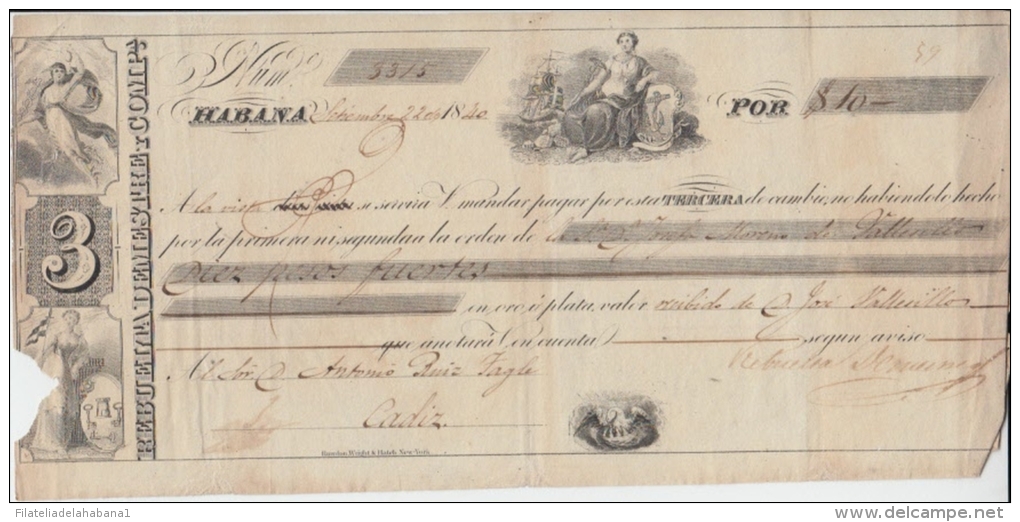 Núm. 3315
59
HABANA Setiembre 22 de 1840
POR $10—
3
REBUELTA DEMESTRE Y COMPA.
A la vista se servirá V. mandar pagar por esta TERCERA de cambio, no habiendolo hecho
por la primera ni segunda a la orden de la Sra. Da. Josefa Moreno de Vallecillo
Diez pesos fuertes
en oro ó plata, valor recibido de D. José Vallecillo
que anotará V. en cuenta segun aviso
Al Sor. D. Antonio Ruiz Tagle
Cadiz.
Rawdon, Wright & Hatch, New-York.
Filateliadelahabana1
delcampe.net